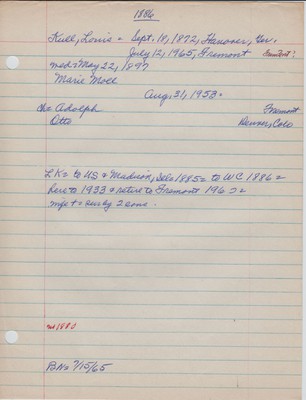 1886
Kull, Louis = Sept. 18, 1872, Hanover, Ger.
July 12, 1965, Fremont Fremont?
med = May 22, 1897
Marie Moll
Aug. 31, 1958.
ch = Adolph Fremont
Otto Denver, Colo
LK = to US & Madison, 1885 = to WC 1886 =
here to 1933 & retire to Fremont 196
wife + = surby 2 sons.
not 1880
BN = 7/15/65